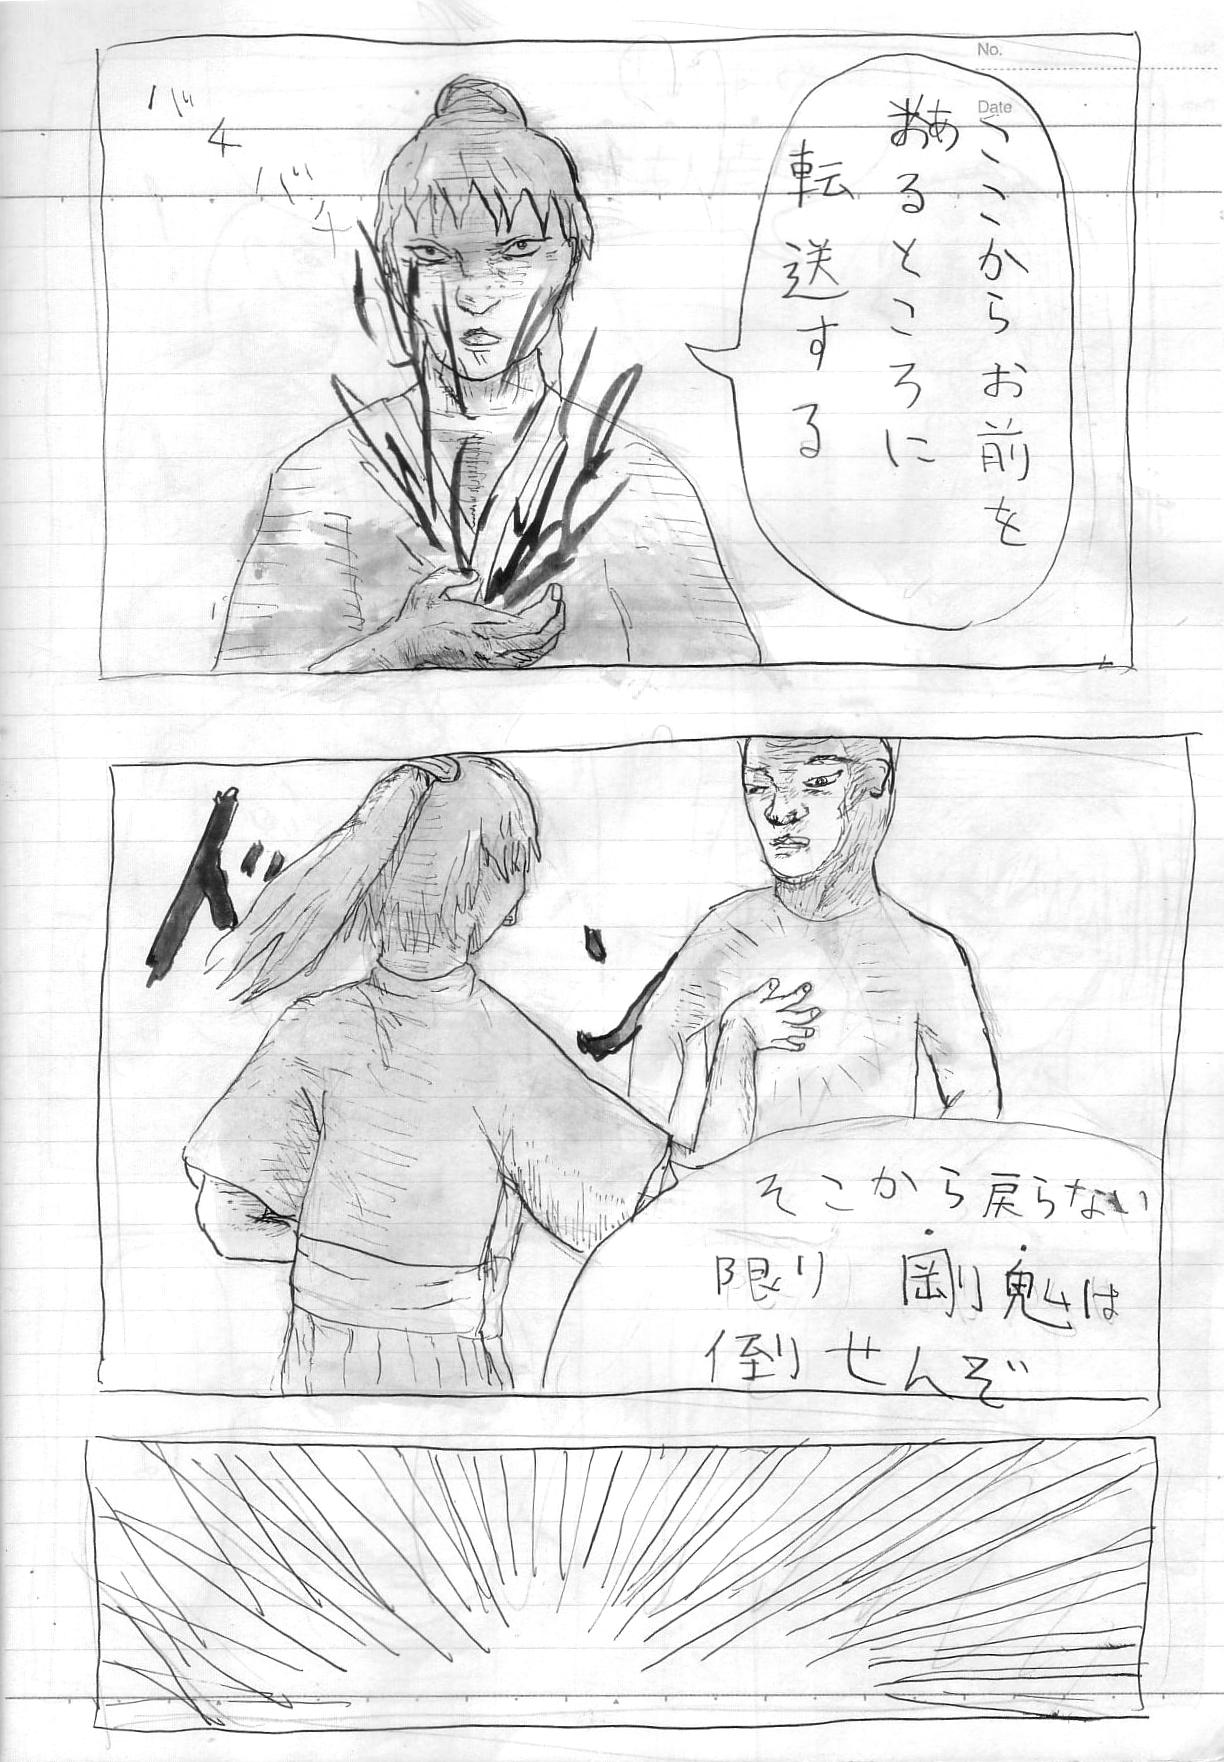 No.
Date
ここからお前を
あるところに
転送する
バチ
バチ
ドン
そこから戻らない
限り 剛鬼は
倒せんぞ